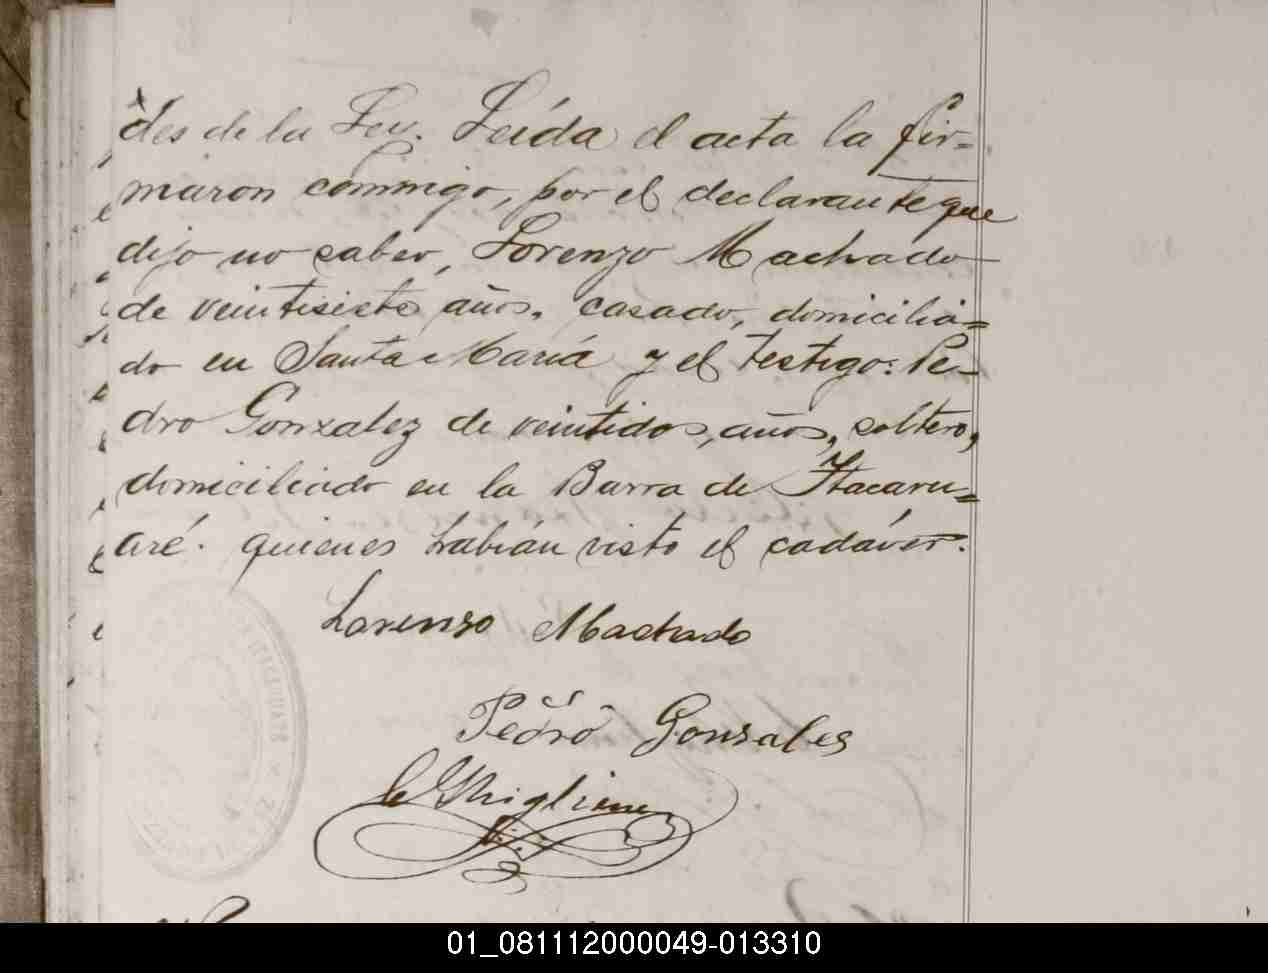 des de la Ley. Leída el acta la fir=
maron conmigo, por el declarante que
dijo no saber, Lorenzo Machado
de veintisiete años, casado, domicilia=
do en Santa María y el testigo: Pe=
dro Gonzalez de veintidos, años, soltero,
domiciliado en la Barra de Itacaru=
aré. quienes habían visto el cadáver.
Lorenso Machado
Pedro Gonsales
01_081112000049-013310